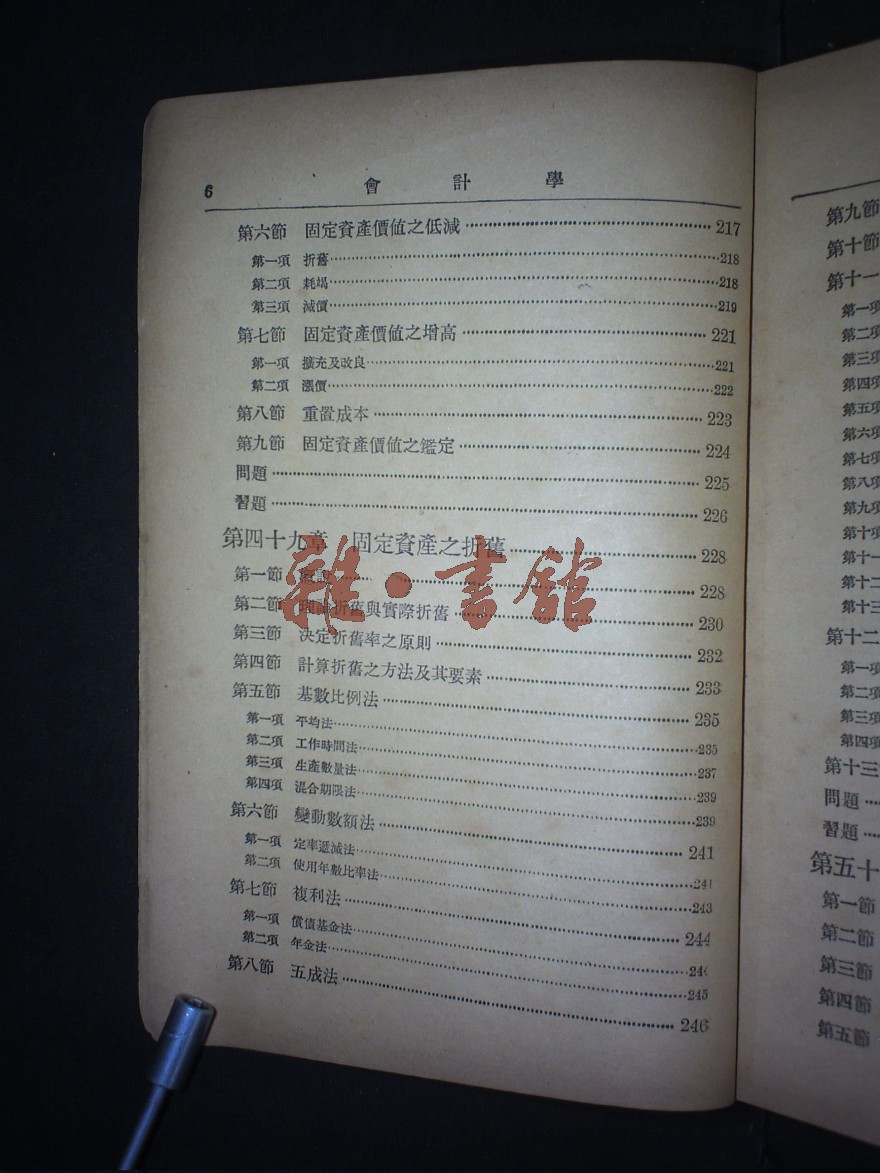 6 會計學
第六節 固定資產價值之低減 217
第一項 折舊 218
第二項 耗竭 218
第三項 減價 219
第七節 固定資產價值之增高 221
第一項 擴充及改良 221
第二項 漲價 222
第八節 重置成本 223
第九節 固定資產價值之鑑定 224
問題 225
習題 226
第四十九章 固定資產之折舊 228
第一節 228
第二節 理論折舊與實際折舊 230
第三節 決定折舊率之原則 232
第四節 計算折舊之方法及其要素 233
第五節 基數比例法 235
第一項 平均法 235
第二項 工作時間法 237
第三項 生產數量法 239
第四項 混合期限法 239
第六節 變動數額法 241
第一項 定率遞減法 241
第二項 使用年數比率法 243
第七節 複利法 244
第一項 償債基金法 244
第二項 年金法 245
第八節 五成法 246
雜·書館
第九節
第十節
第十一
第一項
第二項
第三項
第四項
第五項
第六項
第七項
第八項
第九項
第十項
第十一
第十二
第十三
第十二
第一項
第二項
第三項
第四項
第十三
問題
習題
第五十
第一節
第二節
第三節
第四節
第五節